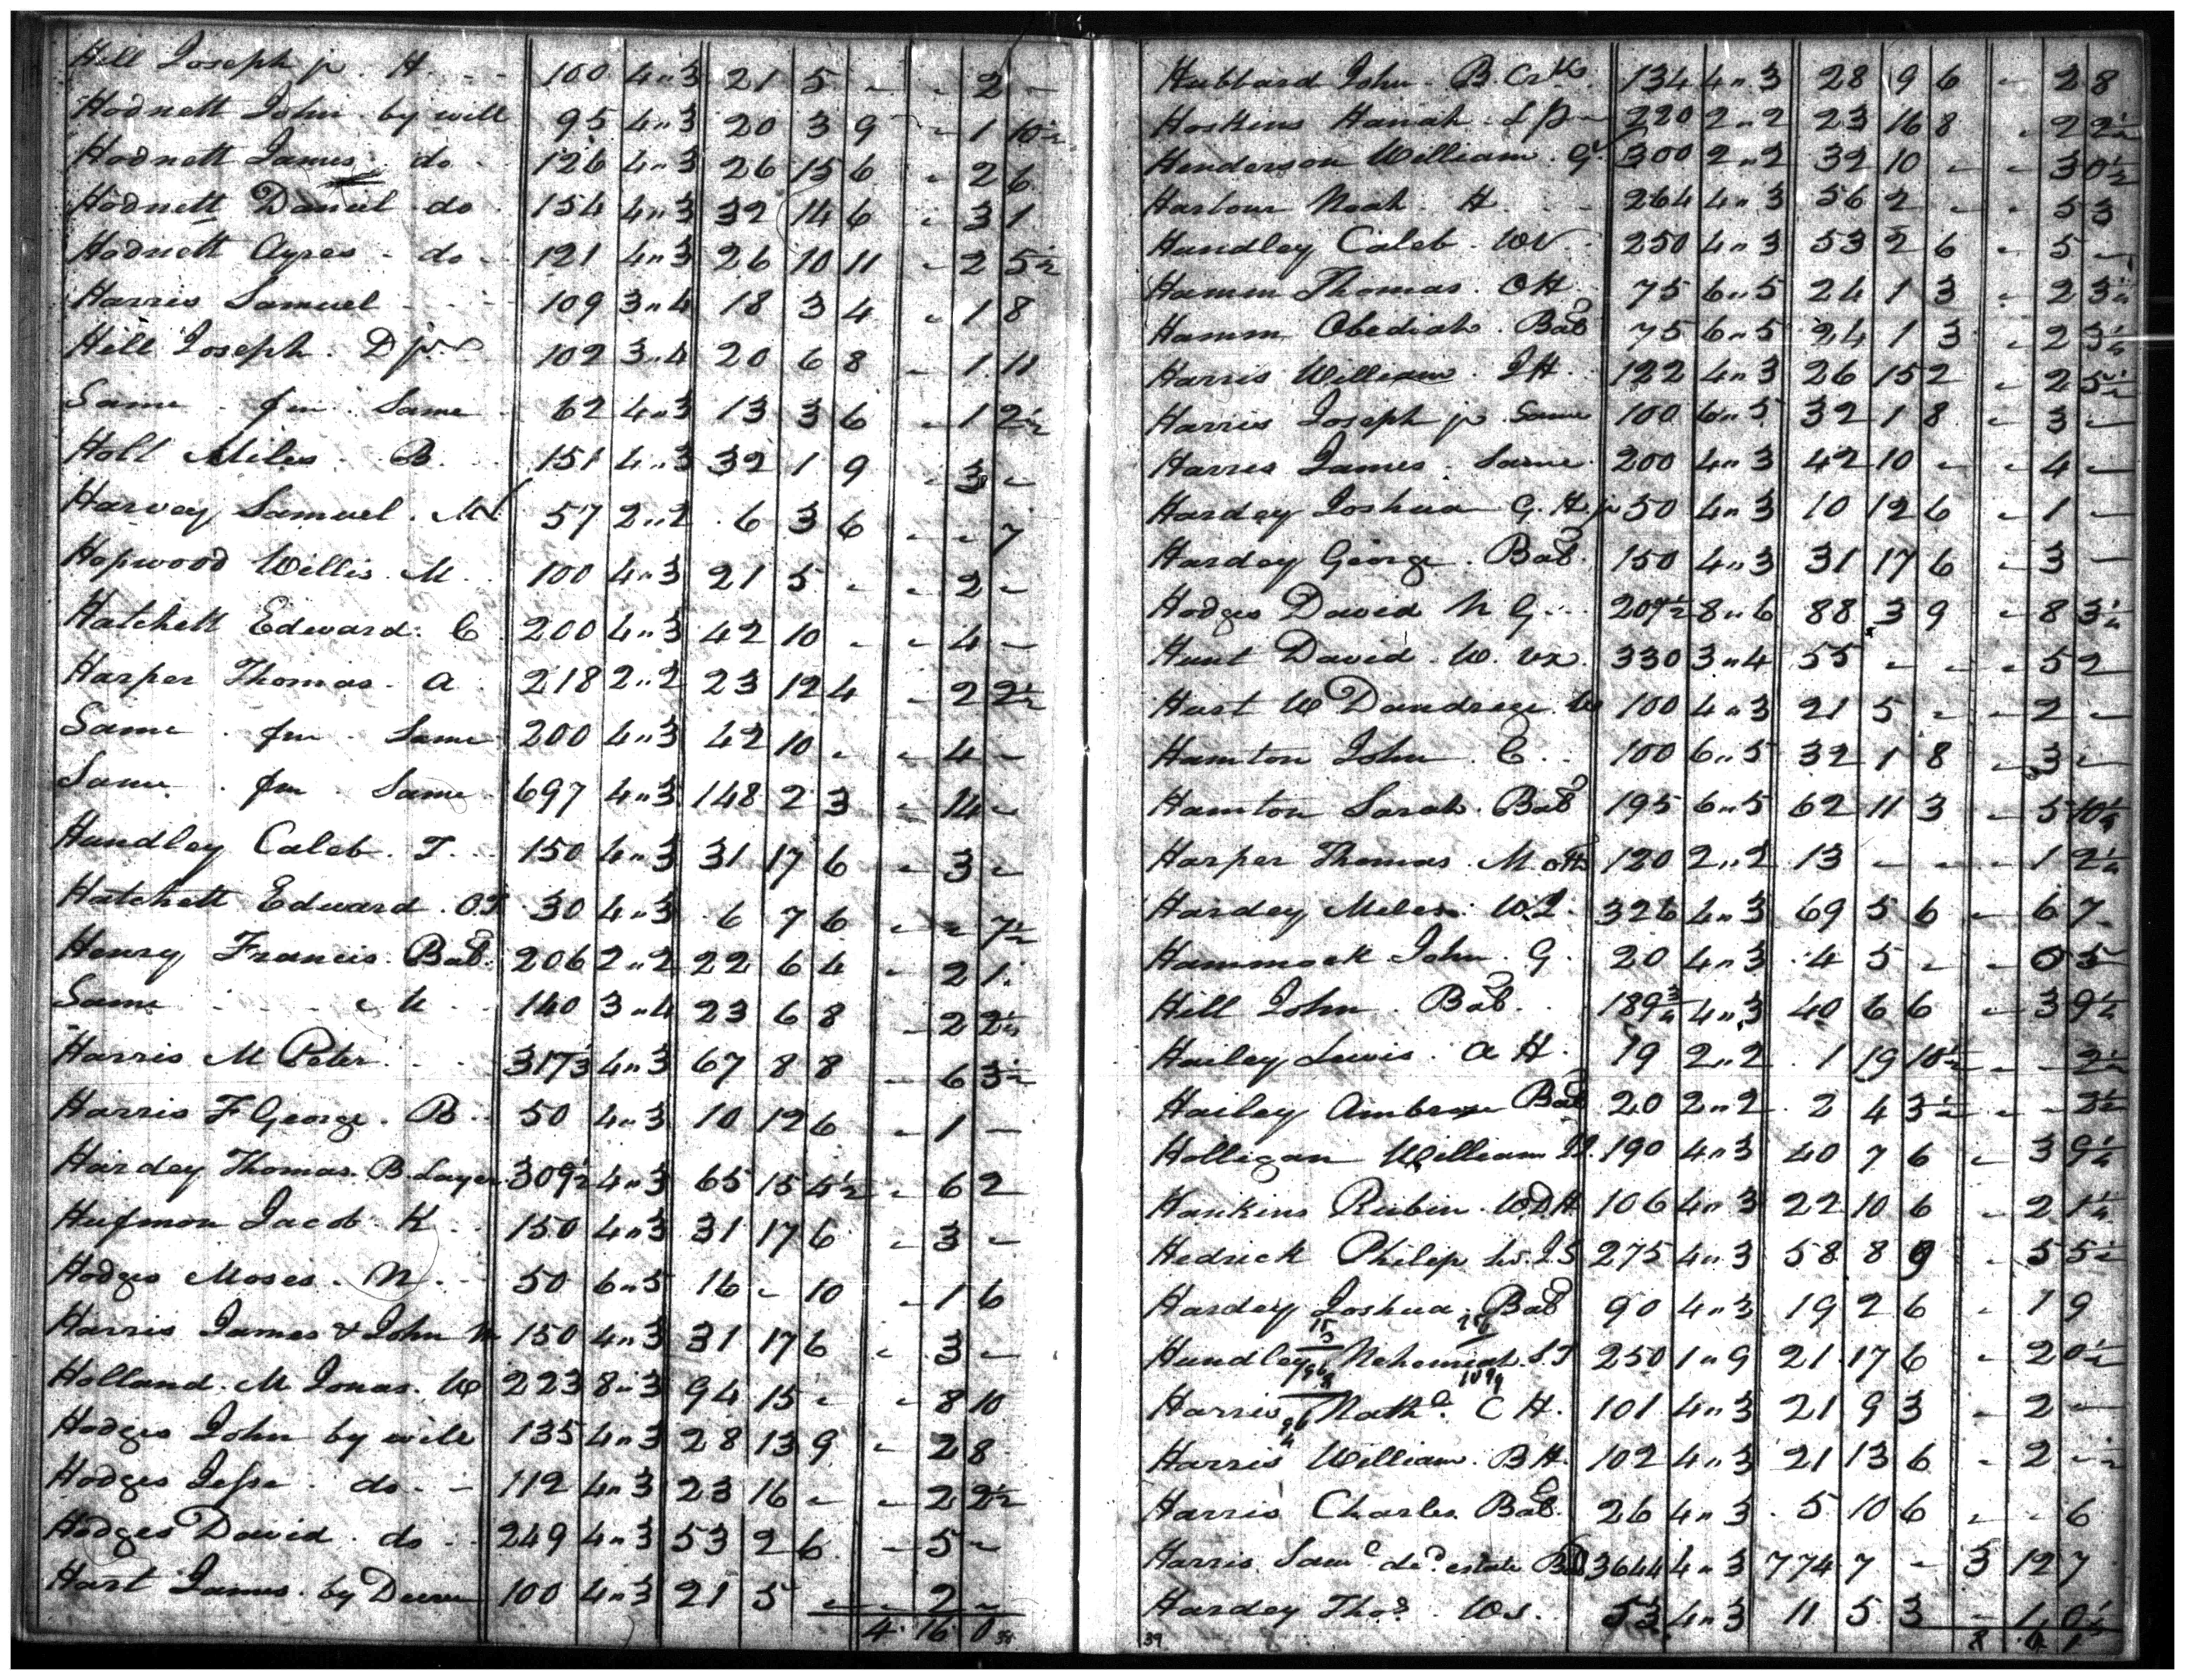 Hill Joseph jr. H. - - 100 4"3 21 5 - - 2 -
Hodnett John by will 95 4"3 20 3 9 - 1 10½
Hodnett James do - 126 4"3 26 15 6 - 2 6
Hodnett Daniel do 154 4"3 32 14 6 - 3 1
Hodnett Ayres - do - 121 4"3 26 10 11 - 2 5½
Harris Samuel - - - 109 3"4 18 3 4 - 1 8
Hill Joseph. D jr. 102 3"4 20 6 8 - 1 11
Same fm Same 62 4"3 13 3 6 - 1 2½
Holl Miles. B. 151 4"3 32 1 9 - 3 -
Harvey Samuel. M 57 2"2 6 3 6 - - 7
Hopwood Willis. M. 100 4"3 21 5 - - 2 -
Hatchett Edward. C 200 4"3 42 10 - - 4 -
Harper Thomas. A 218 2"2 23 12 4 - 2 2½
Same fm Same 200 4"3 42 10 - - 4 -
Same fm Same 697 4"3 148 2 3 - 14 -
Hundley Caleb. T. 150 4"3 31 17 6 - 3 -
Hatchett Edward. OT 30 4"3 6 7 6 - - 7½
Henry Francis. Bad. 206 2"2 22 6 4 - 2 1
Same - - - 140 3"4 23 6 8 - 2 2¼
Harris M Peter. 317½ 4"3 67 8 8 - 6 3½
Harris F George. B. 50 4"3 10 12 6 - 1 -
Hardey Thomas. B. Layer 309½ 4"3 65 15 4½ - 6 2
Hufmon Jacob. K 150 4"3 31 17 6 - 3 -
Hodges Moses. N. - 50 6"5 16 - 10 - 1 6
Harris James & John M 150 4"3 31 17 6 - 3 -
Holland. M Jonas. W 223 8"3 94 15 - - 8 10
Hodges John by will 135 4"3 28 13 9 - 2 8
Hodges Jesse. do. - 112 4"3 23 16 - - 2 2½
Hodges David. do - 249 4"3 53 2 6 - 5 -
Hart James. by Decree 100 4"3 21 5 - - 2 -
4 16 0
Hubbard John. B. Crks 134 4"3 28 9 6 - 2 8
Hoskins Hanah. 220 2"2 23 16 8 - 2 2½
Henderson William. G. 300 2"2 32 10 - - 3 0½
Harbour Noah. H. - - 264 4"3 56 2 - - 5 3
Hundley Caleb. W 250 4"3 53 2 6 - 5 -
Hamm Thomas. CH. 75 6"5 24 1 3 - 2 3¼
Hamm Obediah. Bad 75 6"5 24 1 3 - 2 3¼
Harris William. JH. 122 4"3 26 15 2 - 2 5½
Harris Joseph jr Same 100 6"5 32 1 8 - 3 -
Harris James. Same 200 4"3 42 10 - - 4 -
Hardey Joshua G. H. jr 50 4"3 10 12 6 - 1 -
Hardey George. Bad. 150 4"3 31 17 6 - 3 -
Hodges David N G. 207½ 8"6 88 3 9 - 8 3¼
Hunt David. W. 330 3"4 55 - - - 5 2
Hast W Dandrege. W 100 4"3 21 5 - - 2 -
Hamton John. C. 100 6"5 32 1 8 - 3 -
Hamton Sarah. Bad 195 6"5 62 11 3 - 5 10¼
Harper Thomas. M 120 2"2 13 - - - 1 2¼
Hardey Miles. W. 326 4"3 69 5 6 - 6 7
Hammock John. G. 20 4"3 4 5 - - 0 5
Hill John. Bad. 189¾ 4"3 40 6 6 - 3 9¼
Hailey Lewis. A H. 19 2"2 1 19 10½ - - 2¼
Hailey Ambrose Bad 20 2"2 2 4 3½ - - 2½
Holligan William 190 4"3 40 7 6 - 3 9¼
Hankins Rubin. W.D.H 106 4"3 22 10 6 - 2 1¼
Hedrick Philip 275 4"3 58 8 9 - 5 5½
Hardey Joshua. Bad 90 4"3 19 2 6 - 1 9
Hundley Nehemiah. 250 1"9 21 17 6 - 2 0½
Harris Nathl. C H. 101 4"3 21 9 3 - 2 -
Harris William. B H. 102 4"3 21 13 6 - 2 -
Harris Charles. Bad. 26 4"3 5 10 6 - - 6
Harris Saml decd estate Bad 3644 4"3 774 7 - 3 12 7
Hardey Thos. Ws. 53 4"3 11 5 3 - 1 0½
39